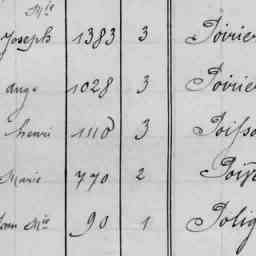 Mie
Joseph 1383 3 Poirie
ange 1028 3 Poirie
henri 1118 3 Poisso
Marie 770 2 Pois
Jean Mie 90 1 Polig